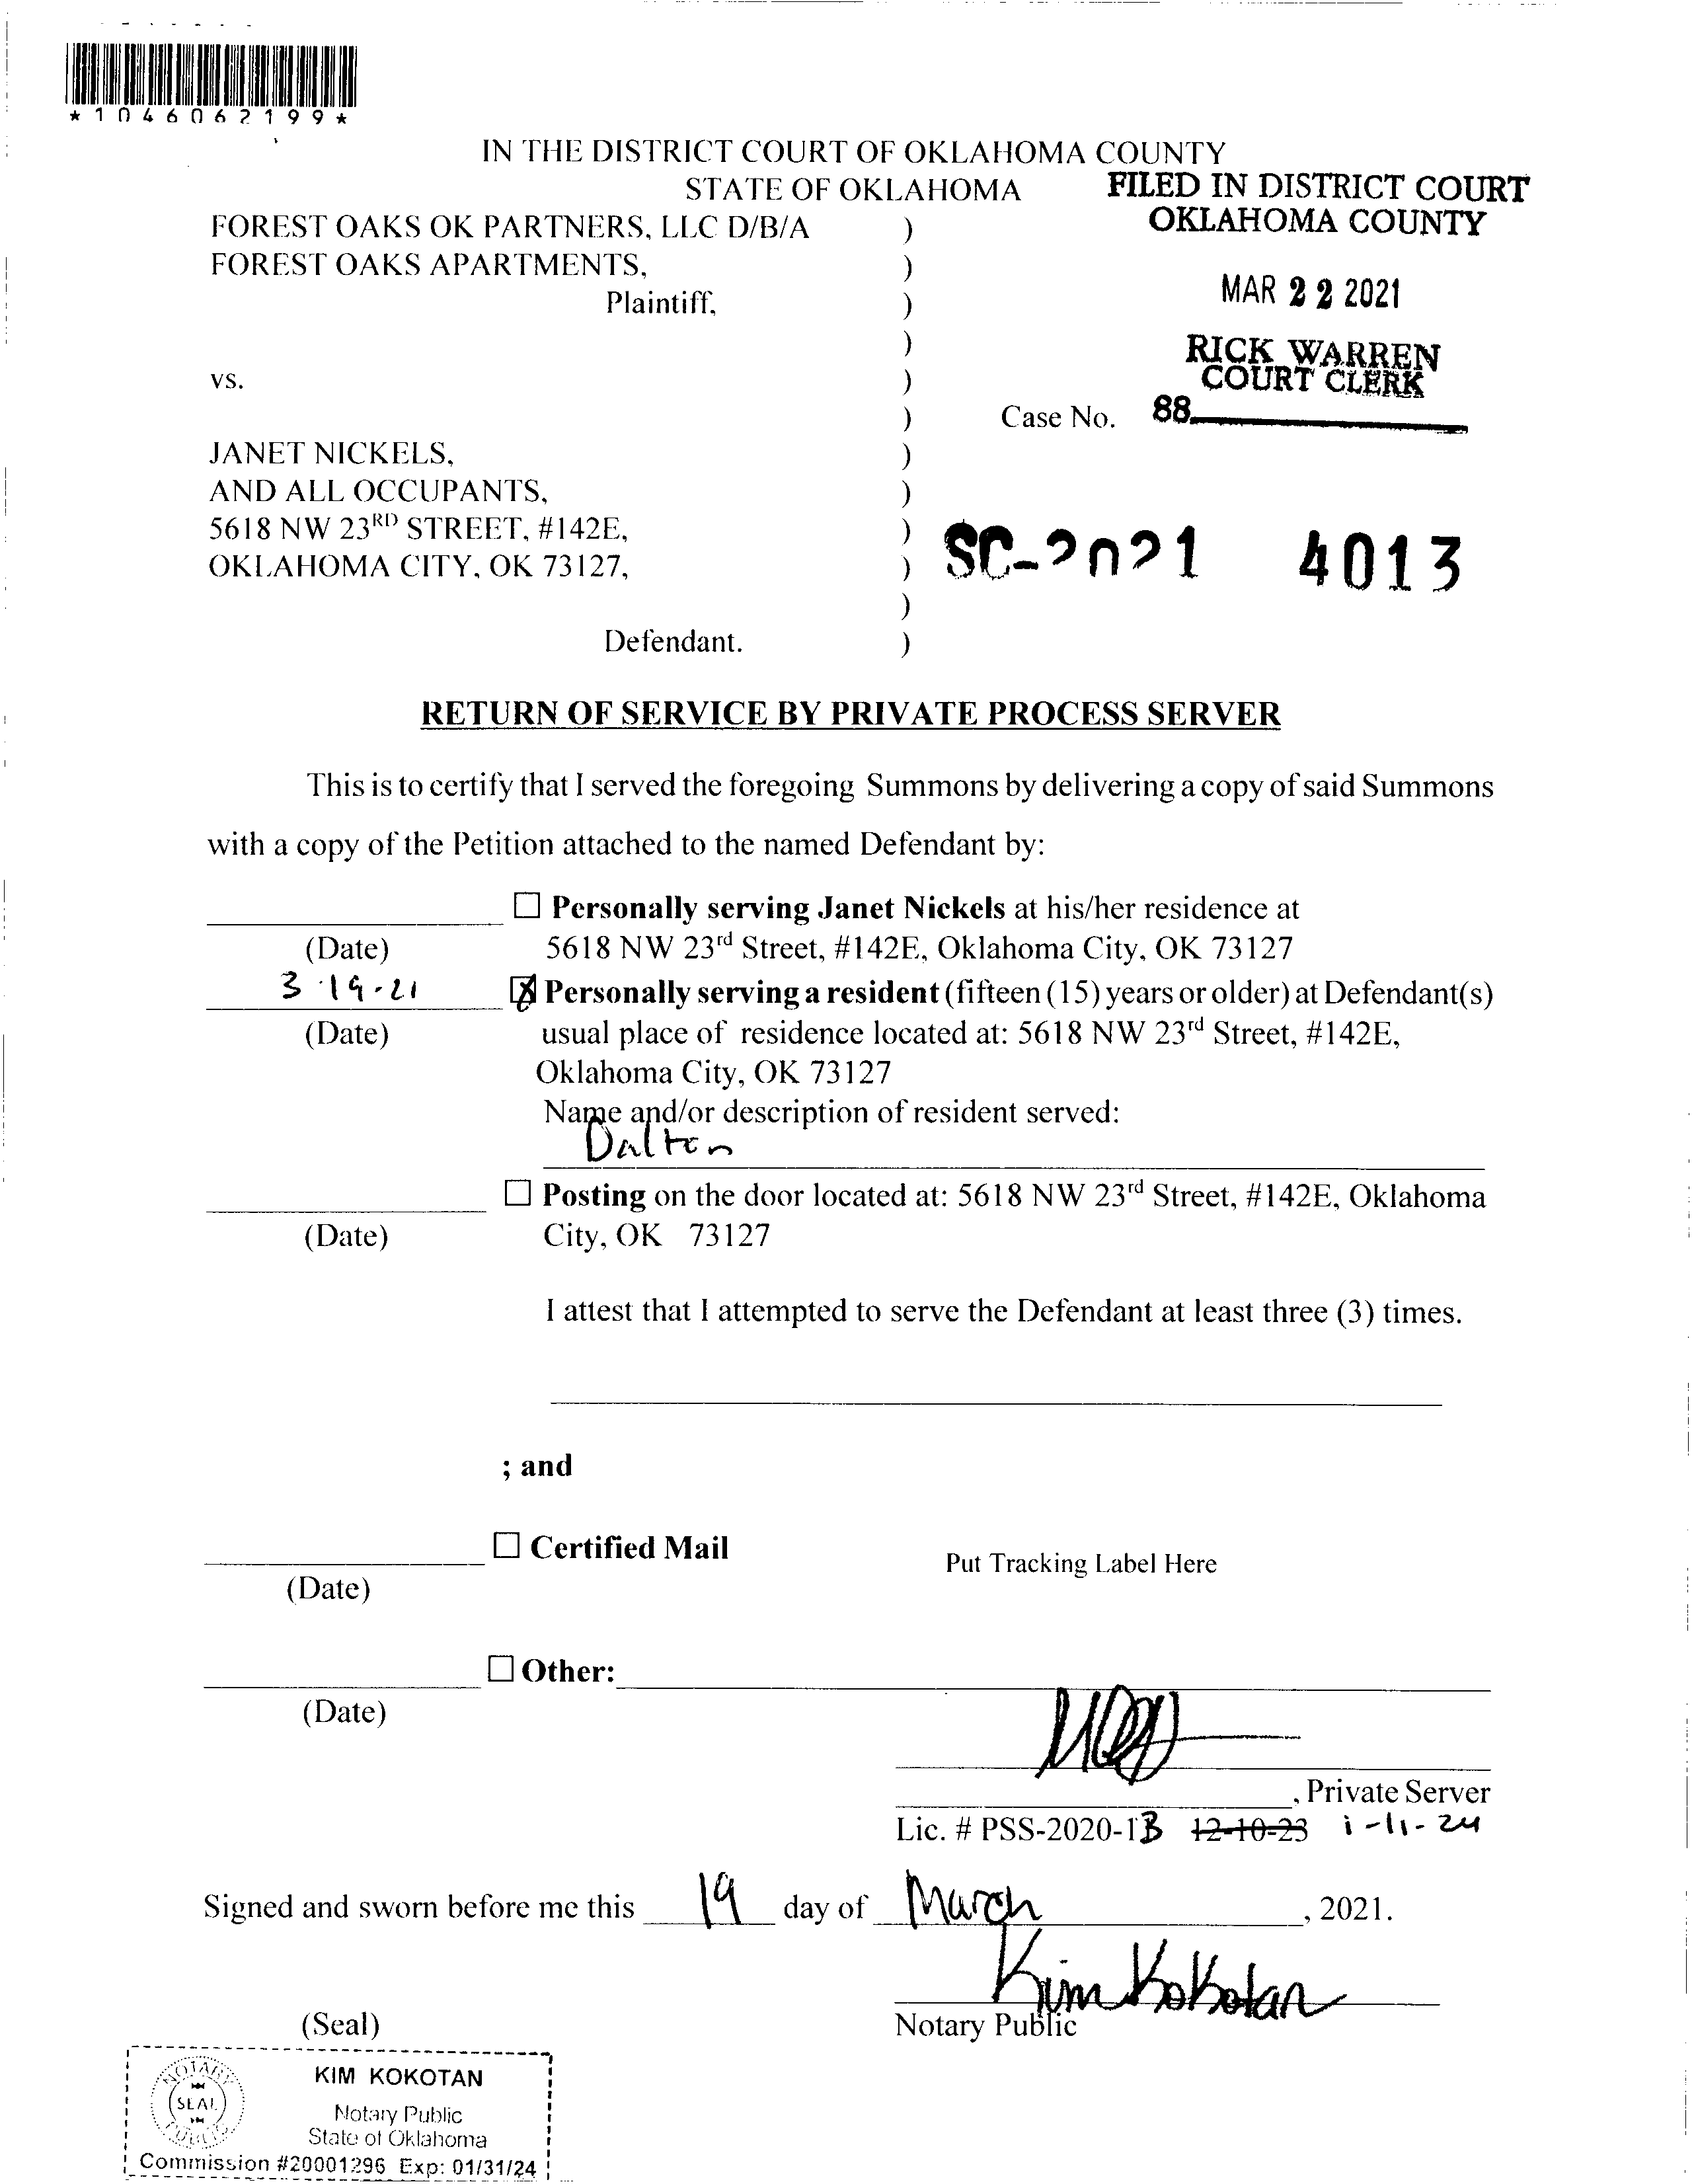 *1046062199*
IN THE DISTRICT COURT OF OKLAHOMA COUNTY
STATE OF OKLAHOMA
FILED IN DISTRICT COURT
OKLAHOMA COUNTY
FOREST OAKS OK PARTNERS, LLC D/B/A )
FOREST OAKS APARTMENTS, )
Plaintiff, )
MAR 22 2021
)
RICK WARREN
COURT CLERK
vs. )
) Case No. 88
JANET NICKELS, )
AND ALL OCCUPANTS, )
5618 NW 23RD STREET, #142E, )
OKLAHOMA CITY, OK 73127, ) SC-2021 4013
)
Defendant. )
RETURN OF SERVICE BY PRIVATE PROCESS SERVER
This is to certify that I served the foregoing Summons by delivering a copy of said Summons
with a copy of the Petition attached to the named Defendant by:
☐ Personally serving Janet Nickels at his/her residence at
(Date) 5618 NW 23rd Street, #142E, Oklahoma City, OK 73127
3-19-21 ☒ Personally serving a resident (fifteen (15) years or older) at Defendant(s)
(Date) usual place of residence located at: 5618 NW 23rd Street, #142E,
Oklahoma City, OK 73127
Name and/or description of resident served:
Dalton
☐ Posting on the door located at: 5618 NW 23rd Street, #142E, Oklahoma
(Date) City, OK 73127
I attest that I attempted to serve the Defendant at least three (3) times.
; and
☐ Certified Mail
Put Tracking Label Here
(Date)
☐ Other:
(Date)
, Private Server
Lic. # PSS-2020-13 12-10-23 1-11-24
Signed and sworn before me this 19 day of March, 2021.
Kim Kokotan
(Seal) Notary Public
KIM KOKOTAN
NOTARY
SEAL
PUBLIC
Notary Public
State of Oklahoma
Commission #20001296 Exp: 01/31/24